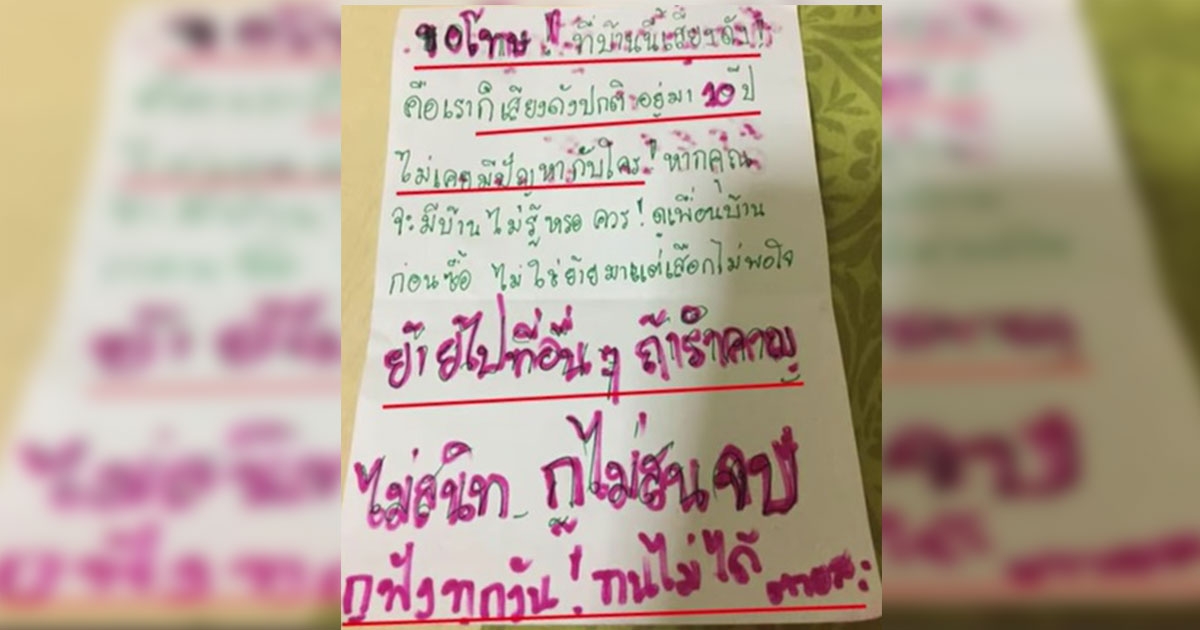 ขอโทษ! ที่บ้านนี้เสียงดัง!
คือเราก็เสียงดังปกติอยู่มา 10 ปี
ไม่เคยมีปัญหากับใคร! หากคุณ
จะมีบ้าน ไม่รู้หรอ ควร! ดูเพื่อนบ้าน
ก่อนซื้อ ไม่ใช่ย้ายมาแต่เสือกไม่พอใจ
ย้ายไปที่อื่นๆ ถ้ารำคาญ
ไม่สนิท กูไม่สน จบ
กูฟังทุกวัน! ทนไม่ได้